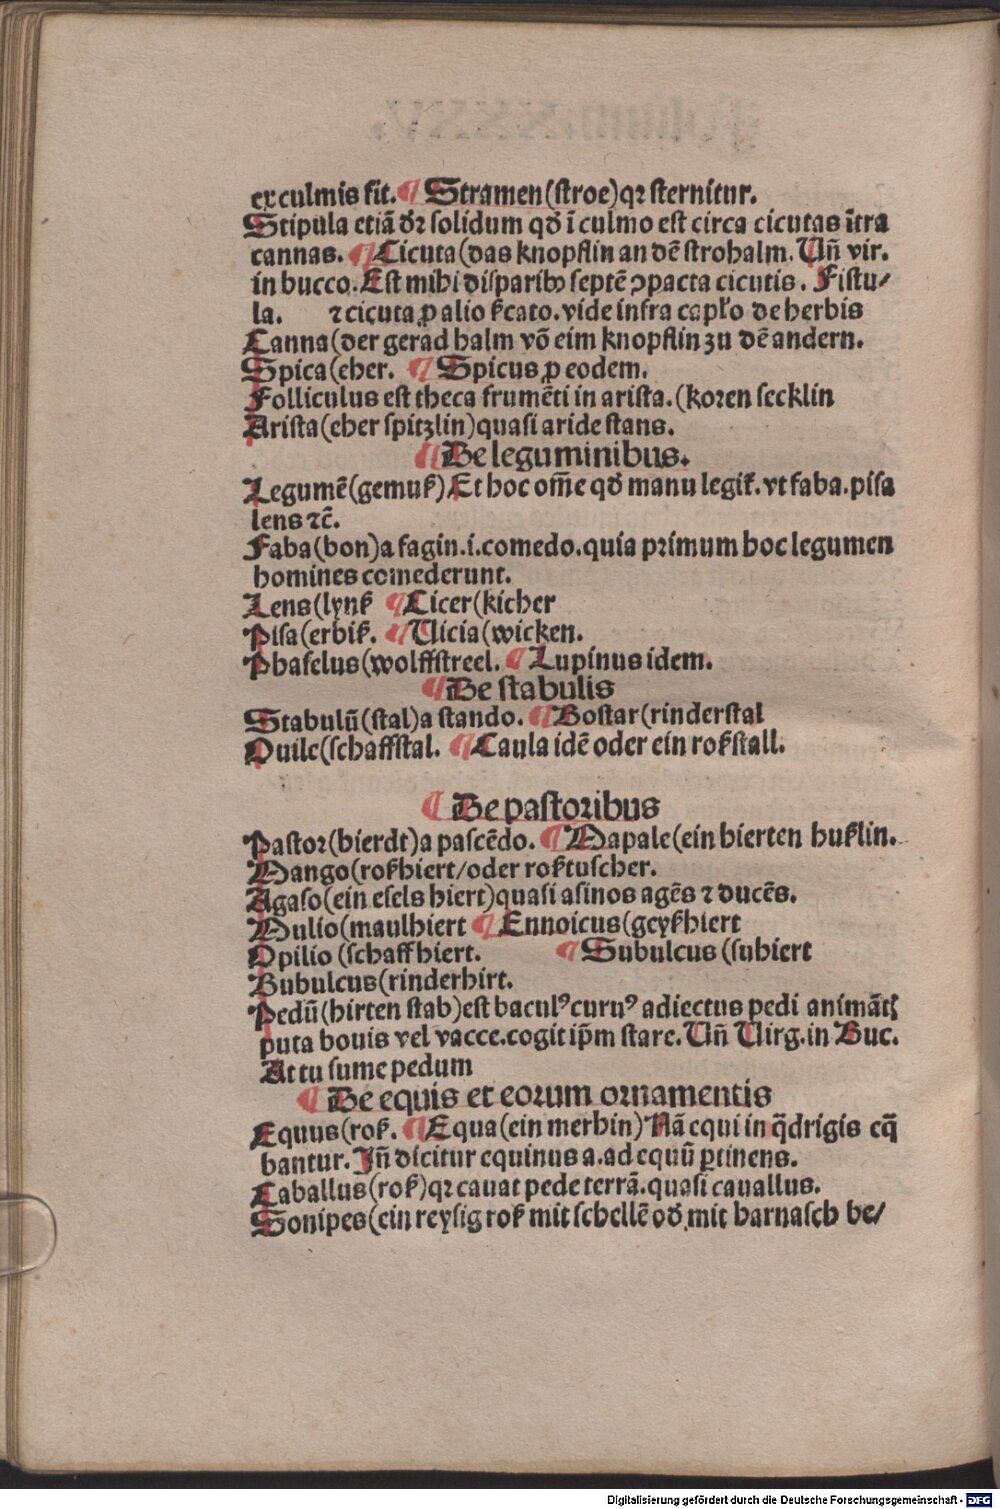 ex culmis fit. ¶ Stramen (stroe) qꝛ sternitur.
Stipula etiã dꝛ̄ solidum qđ ĩ culmo est circa cicutas ĩtra
cannas. ¶ Cicuta (das knopflin an dẽ strohalm. Uñ vir.
in bucco. Est mihi disparibꝰ septẽ ꝯpacta cicutis. Fistu/
la. ⁊ cicuta ꝓ alio s̃cato. vide infra capło de herbis
Canna (der gerad halm võ eim knopflin zu dẽ andern.
Spica (eher. ¶ Spicus ꝓ eodem.
Folliculus est theca frumẽti in arista. (koꝛen secklin
Arista (eher spitzlin) quasi aride stans.
¶ De leguminibus.
Legumẽ (gemuß) Et hoc om̃e qđ manu legiť. vt faba. pisa
lens ⁊c̃.
Faba (bon) a fagin .i. comedo. quia pꝛimum hoc legumen
homines comederunt.
Lens (lynß ¶ Cicer (kicher
Pisa (erbiß. ¶ Uicia (wicken.
Phaselus (wolffstreel. ¶ Lupinus idem.
¶ De stabulis
Stabulũ (stal) a stando. ¶ Bostar (rinderstal
Ouile (schaffstal. ¶ Caula idẽ oder ein roßstall.
¶ De pastoꝛibus
Pastoꝛ (hierdt) a pascẽdo. ¶ Mapale (ein hierten hußlin.
Mango (roßhiert/oder roßtuscher.
Agaso (ein esels hiert) quasi asinos agẽs ⁊ ducẽs.
Mulio (maulhiert ¶ Ennoicus (geyßhiert
Opilio (schaffhiert. ¶ Subulcus (suhiert
Bubulcus (rinderhirt.
Pedũ (hirten stab) est baculꝰ curuꝰ adiectus pedi animãtꝭ
puta bouis vel vacce. cogit ip̃m stare. Uñ Uirg. in Buc.
At tu sume pedum
¶ De equis et eoꝛum oꝛnamentis
Equus (roß. ¶ Equa (ein merhin) Nã equi in q̃drigis eq̃
bantur. Iñ dicitur equinus a. ad equũ ꝑtinens.
Caballus (roß) qꝛ cauat pede terrã. quasi cauallus.
Sonipes (ein reysig roß mit schellẽ ođ mit harnasch be/
Digitalisierung gefördert durch die Deutsche Forschungsgemeinschaft - DFG